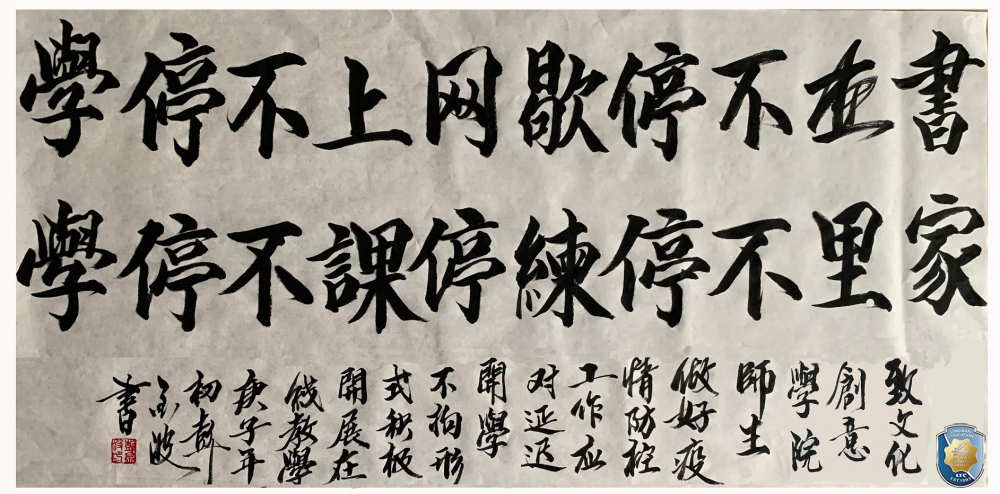 書在不停歇网上不停學
家里不停練停課不停學
致文化
創意
學院
師生
做好疫
情防控
工作应
对延迟
開學
不拘形
式积极
開展在
綫教學
庚子年
初
波
書
LINGNAN EDUCATION
LTC
EST.1993